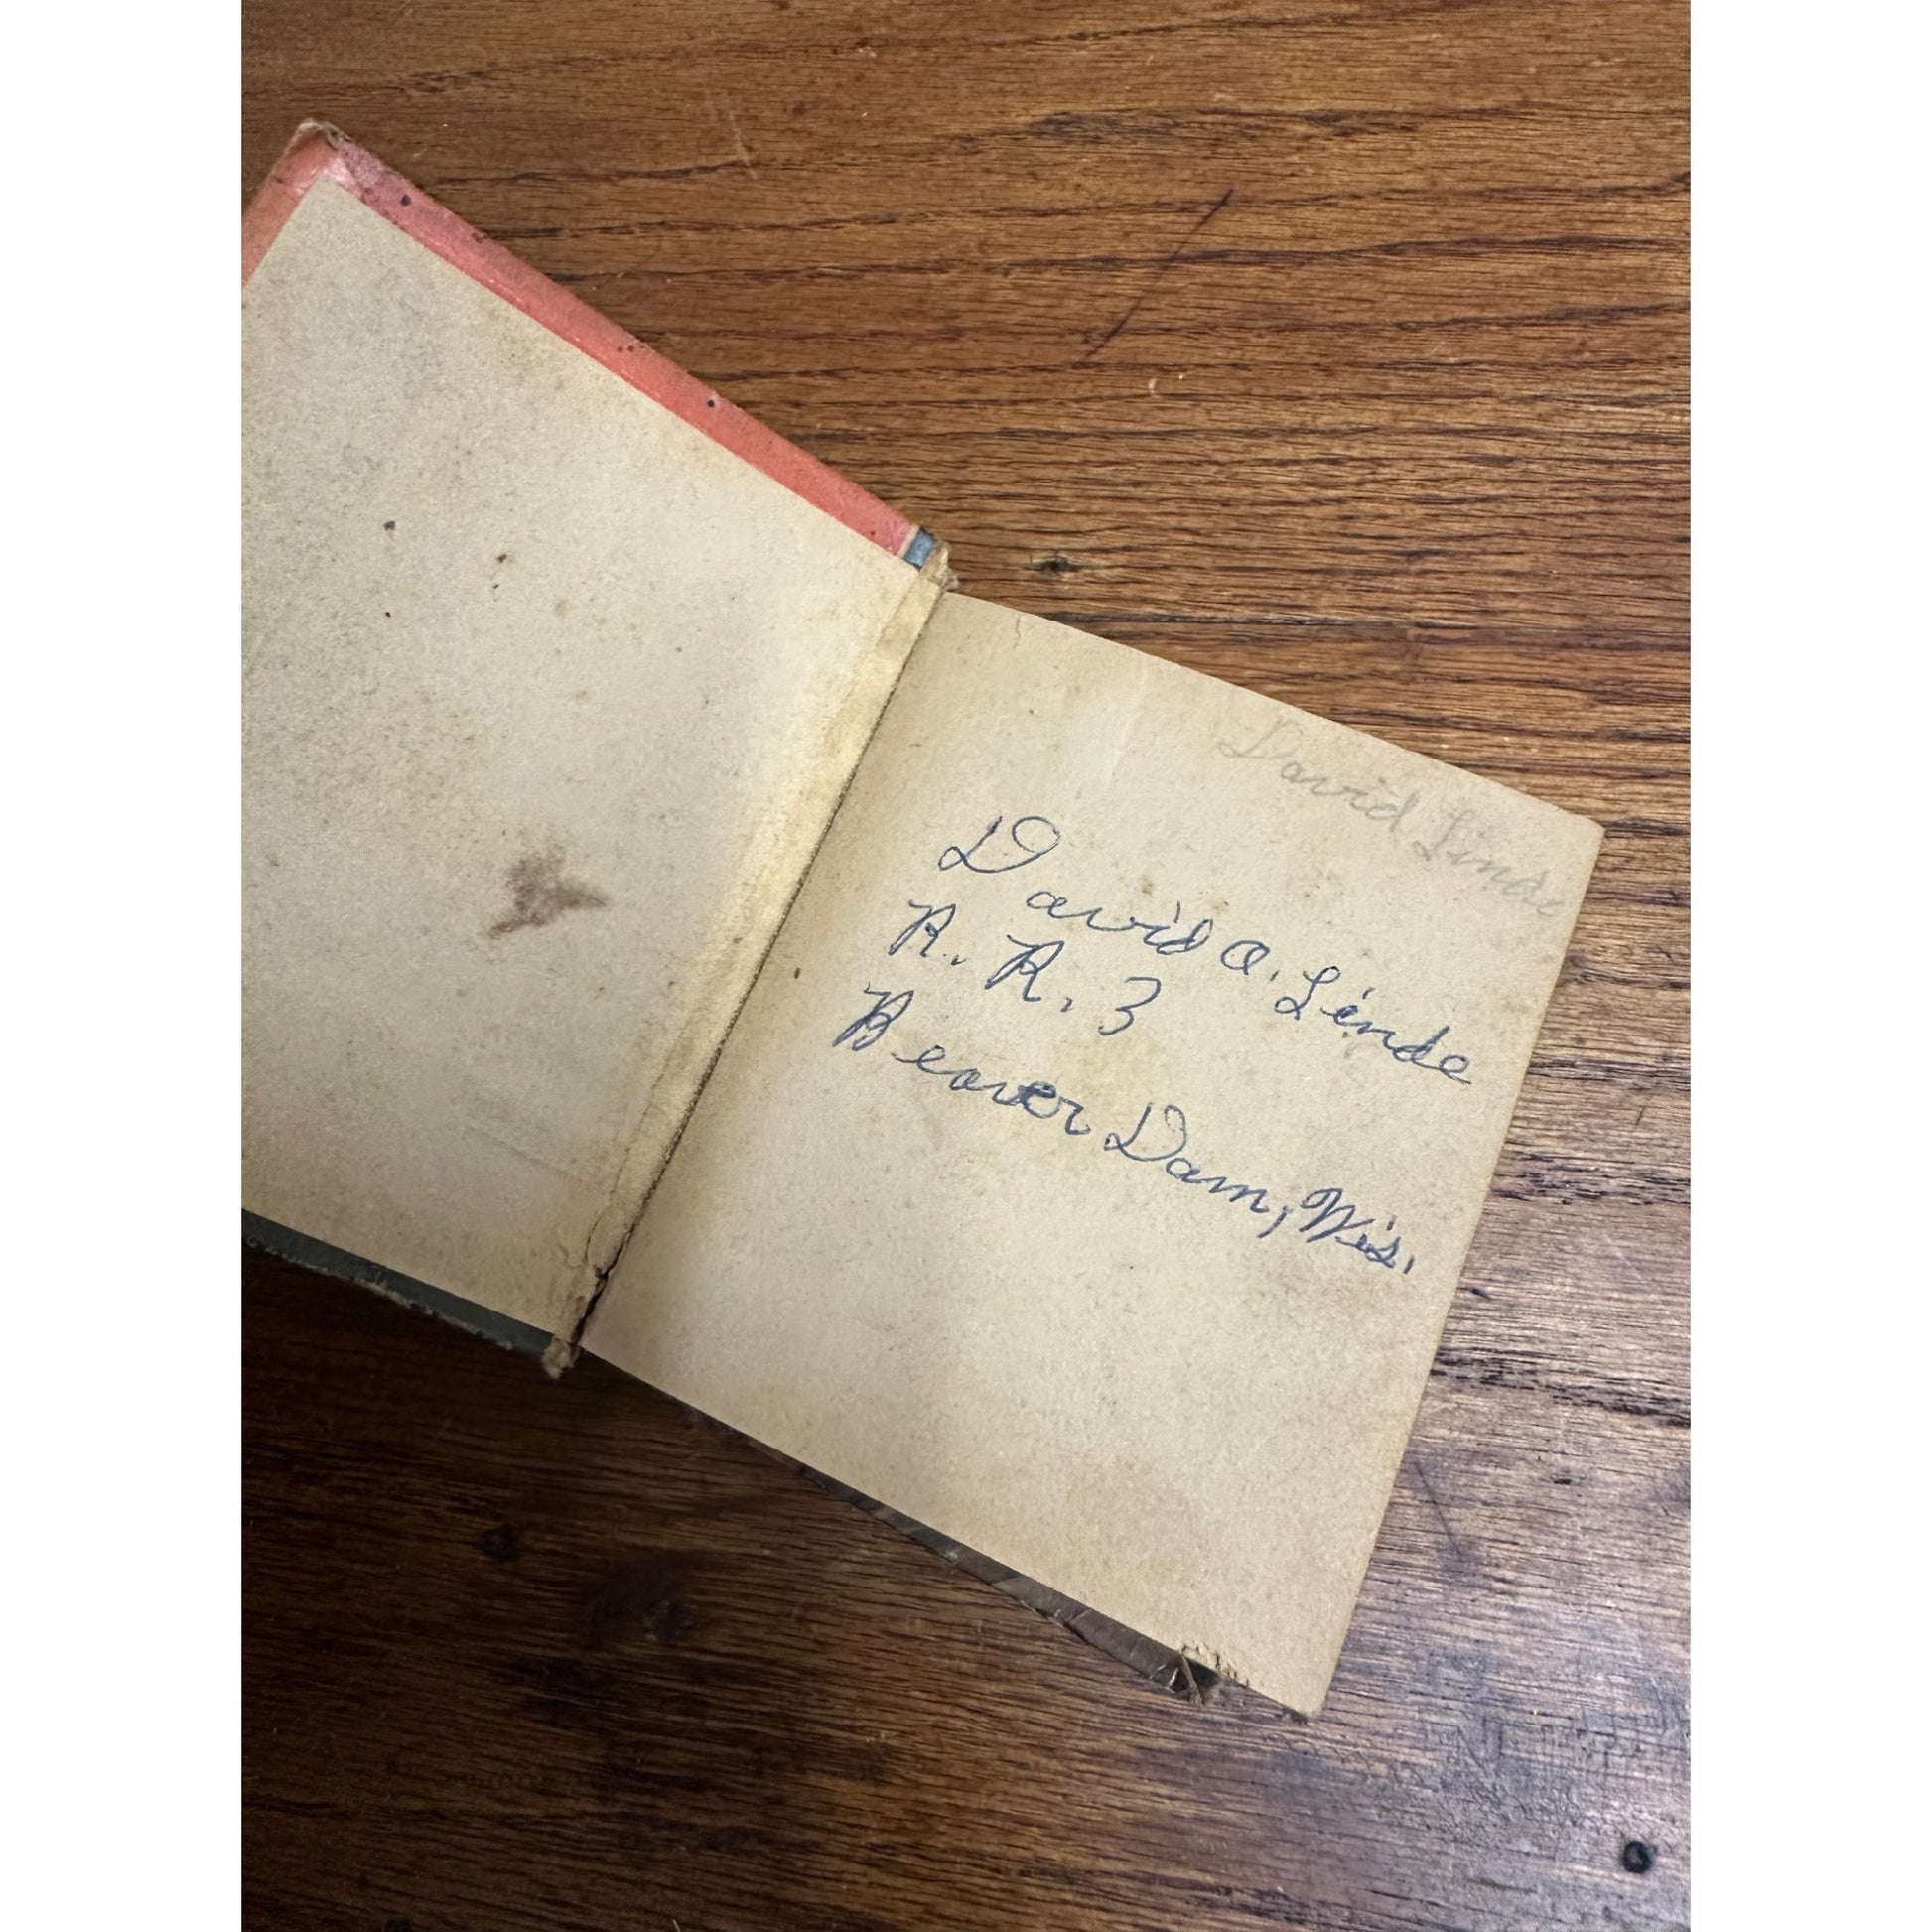 David Linde
David A. Linde
R. R. 3
Beaver Dam, Wis.